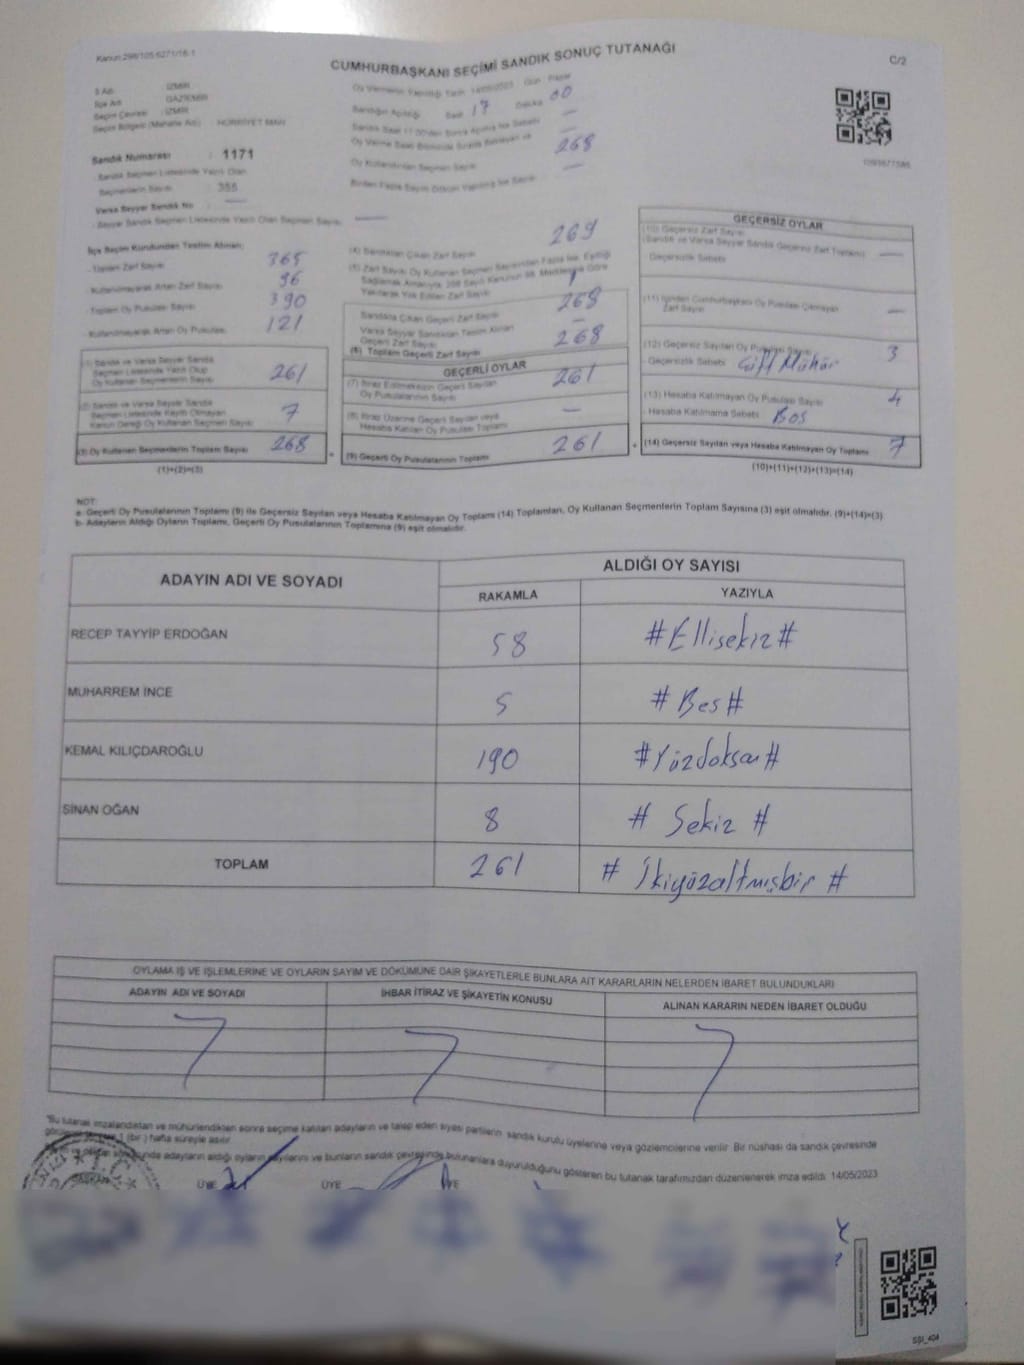 Kanun:298/105.6271/18-1
CUMHURBAŞKANI SEÇİMİ SANDIK SONUÇ TUTANAĞI
C/2
İl Adı : İZMİR
İlçe Adı : GAZİEMİR
Seçim Çevresi : İZMİR
Seçim Bölgesi (Mahalle Adı) : HÜRRİYET MAH.
Sandık Numarası : 1171
- Sandık Seçmen Listesinde Yazılı Olan
Seçmenlerin Sayısı : 355
Varsa Seyyar Sandık No : —
- Seyyar Sandık Seçmen Listesinde Yazılı Olan Seçmen Sayısı —
Oy Vermenin Yapıldığı Tarih 14/05/2023 Gün Pazar
Sandığın Açıldığı Saat 17 Dakika 00
Sandık Saat 17.00'den Sonra Açılmış İse Sebebi —
Oy Verme Saati Bitiminde Sırada Bekleyen ve
Oy Kullandırılan Seçmen Sayısı 268
Birden Fazla Sayım Döküm Yapılmış İse Sayısı —
İlçe Seçim Kurulundan Teslim Alınan;
- Toplam Zarf Sayısı 365
- Kullanılmayarak Artan Zarf Sayısı 96
- Toplam Oy Pusulası Sayısı 390
- Kullanılmayarak Artan Oy Pusulası 121
(1) Sandık ve Varsa Seyyar Sandık
Seçmen Listesinde Yazılı Olup
Oy Kullanan Seçmenlerin Sayısı 261
(2) Sandık ve Varsa Seyyar Sandık
Seçmen Listesinde Kayıtlı Olmayan
Kanun Gereği Oy Kullanan Seçmen Sayısı 7
(3) Oy Kullanan Seçmenlerin Toplam Sayısı 268
(1)+(2)=(3)
(4) Sandıktan Çıkan Zarf Sayısı 269
(5) Zarf Sayısı Oy Kullanan Seçmen Sayısından Fazla İse, Eşitliği
Sağlamak Amacıyla, 298 Sayılı Kanunun 98. Maddesine Göre
Yakılarak Yok Edilen Zarf Sayısı 1
Sandıkta Çıkan Geçerli Zarf Sayısı 268
Varsa Seyyar Sandıktan Teslim Alınan
Geçerli Zarf Sayısı —
(6) Toplam Geçerli Zarf Sayısı 268
GEÇERLİ OYLAR
(7) İtiraz Edilmeksizin Geçerli Sayılan
Oy Pusulalarının Sayısı 261
(8) İtiraz Üzerine Geçerli Sayılan veya
Hesaba Katılan Oy Pusulası Toplamı —
(9) Geçerli Oy Pusulalarının Toplamı 261
GEÇERSİZ OYLAR
(10) Geçersiz Zarf Sayısı
(Sandık ve Varsa Seyyar Sandık Geçersiz Zarf Toplamı) —
- Geçersizlik Sebebi
(11) İçinden Cumhurbaşkanı Oy Pusulası Çıkmayan
Zarf Sayısı —
(12) Geçersiz Sayılan Oy Pusulası Sayısı 3
- Geçersizlik Sebebi Çift Mühür
(13) Hesaba Katılmayan Oy Pusulası Sayısı 4
- Hesaba Katılmama Sebebi BOŞ
(14) Geçersiz Sayılan veya Hesaba Katılmayan Oy Toplamı 7
(10)+(11)+(12)+(13)=(14)
NOT:
a- Geçerli Oy Pusulalarının Toplamı (9) ile Geçersiz Sayılan veya Hesaba Katılmayan Oy Toplamı (14) Toplamları, Oy Kullanan Seçmenlerin Toplam Sayısına (3) eşit olmalıdır. (9)+(14)=(3)
b- Adayların Aldığı Oyların Toplamı, Geçerli Oy Pusulalarının Toplamına (9) eşit olmalıdır.
ADAYIN ADI VE SOYADI
ALDIĞI OY SAYISI
RAKAMLA YAZIYLA
RECEP TAYYİP ERDOĞAN 58 #Ellisekiz#
MUHARREM İNCE 5 #Beş#
KEMAL KILIÇDAROĞLU 190 #Yüzdoksan#
SİNAN OĞAN 8 #Sekiz#
TOPLAM 261 #İkiyüzaltmışbir#
OYLAMA İŞ VE İŞLEMLERİNE VE OYLARIN SAYIM VE DÖKÜMÜNE DAİR ŞİKAYETLERLE BUNLARA AİT KARARLARIN NELERDEN İBARET BULUNDUKLARI
ADAYIN ADI VE SOYADI İHBAR İTİRAZ VE ŞİKAYETİN KONUSU ALINAN KARARIN NEDEN İBARET OLDUĞU
"Bu tutanak imzalandıktan ve mühürlendikten sonra seçime katılan adayların ve talep eden siyasi partilerin sandık kurulu üyelerine veya gözlemcilerine verilir. Bir nüshası da sandık çevresinde
1 (bir) hafta süreyle asılır.
adayların aldığı oyların sayılarını ve bunların sandık çevresinde bulunanlara duyurulduğunu gösteren bu tutanak tarafımızdan düzenlenerek imza edildi. 14/05/2023
BAŞKAN ÜYE ÜYE ÜYE
SSİ_404